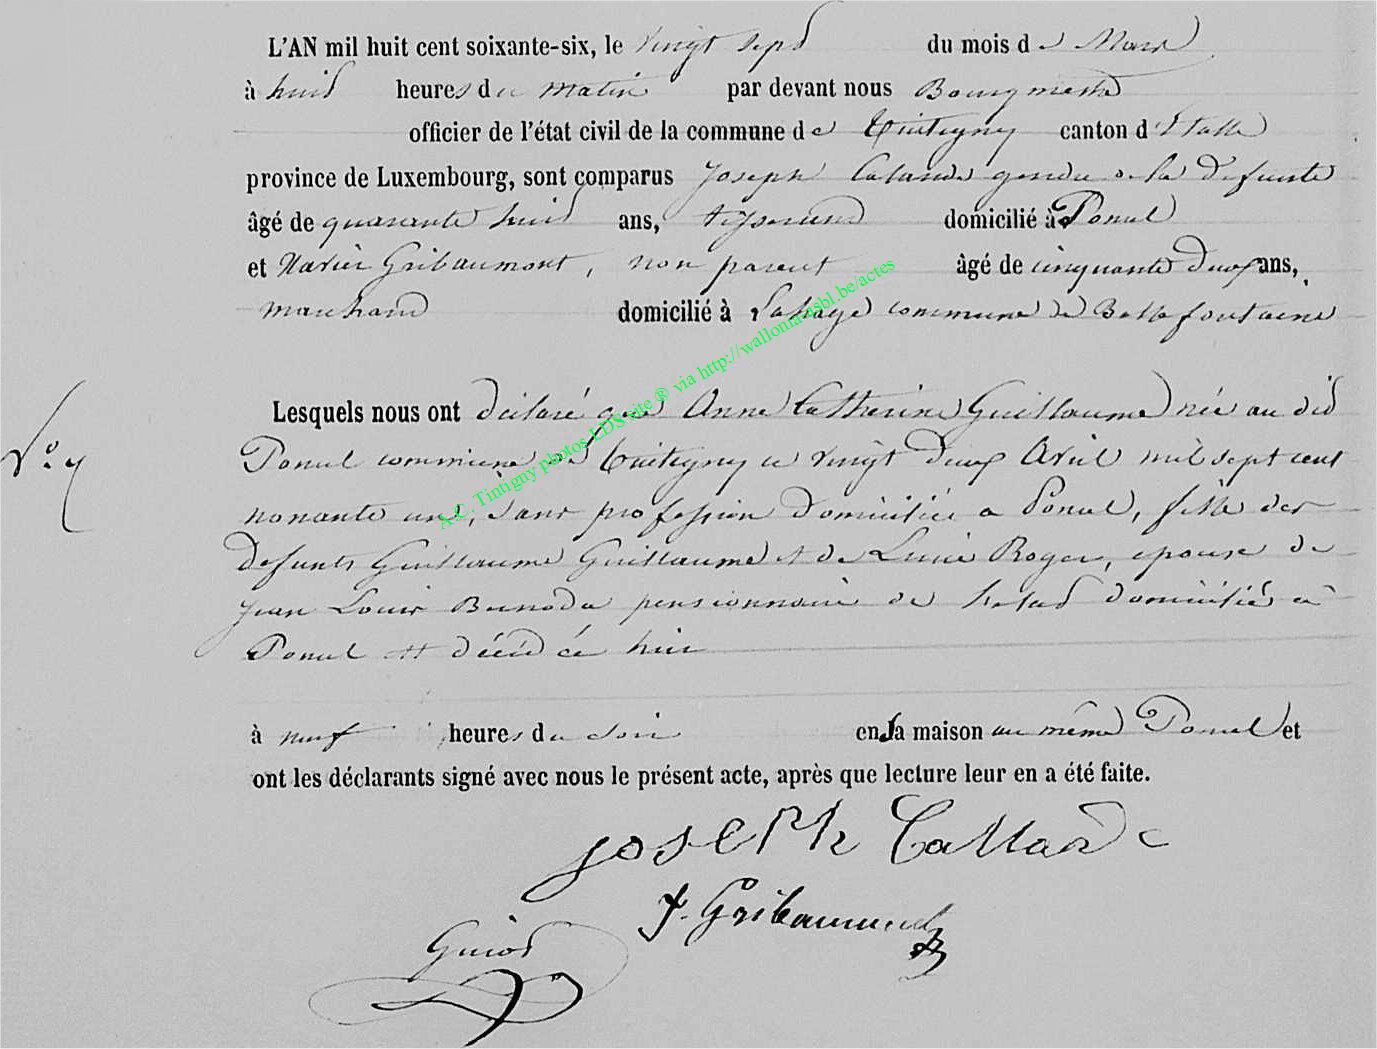 L'AN mil huit cent soixante-six, le vingt sept du mois de Mars
à huit heures du matin par devant nous Bourgmestre
officier de l'état civil de la commune de Tintigny canton d'Etalle
province de Luxembourg, sont comparus Joseph Calande gendre de la défunte
âgé de quarante huit ans, tisserand domicilié à Poncel
et Xavier Gribaumont, non parent âgé de cinquante deux ans,
marchand domicilié à Lahage commune de Bellefontaine
Lesquels nous ont déclaré que Anne Catherine Guillaume née au dit
N° 7
Poncel commune de Tintigny le vingt deux Avril mil sept cent
nonante une, sans profession domiciliée à Poncel, fille des
défunts Guillaume Guillaume et de Lucie Roger, épouse de
Jean Louis pensionnaire de l'etat domicilié à
Poncel est décédée hier
à neuf heures du soir en sa maison au même Poncel et
ont les déclarants signé avec nous le présent acte, après que lecture leur en a été faite.
JOSEPh Callande
Gribaumont
Guiot
A.C. Tintigny photos LDS site ® via http://wallonia-asbl.be/actes